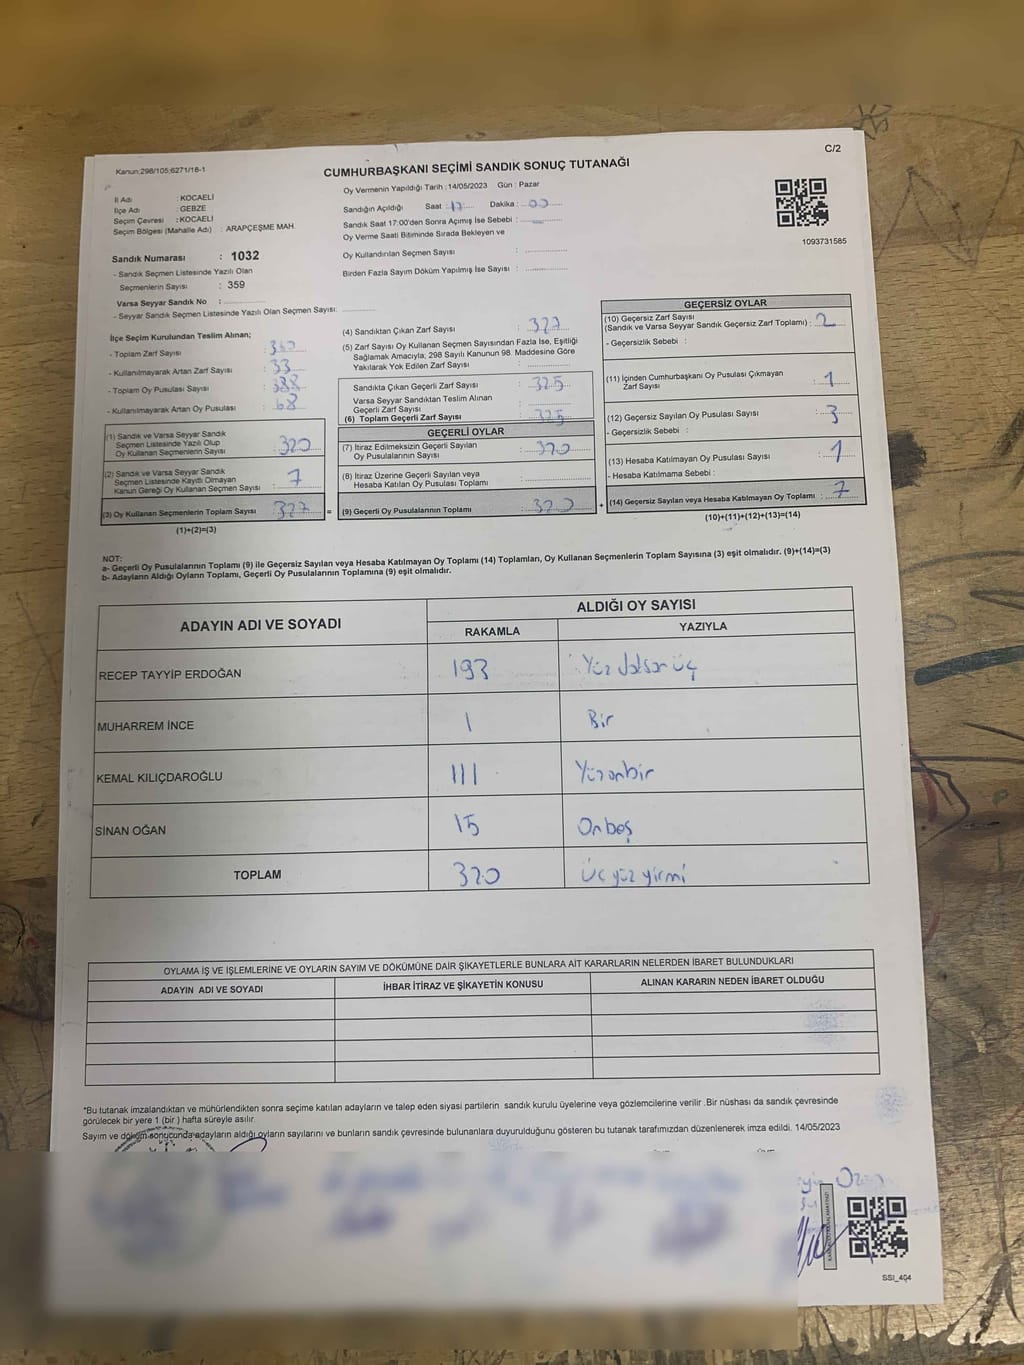 C/2
Kanun:298/105;6271/18-1
CUMHURBAŞKANI SEÇİMİ SANDIK SONUÇ TUTANAĞI
İl Adı : KOCAELİ
İlçe Adı : GEBZE
Seçim Çevresi : KOCAELİ
Seçim Bölgesi (Mahalle Adı) : ARAPÇEŞME MAH.
Sandık Numarası : 1032
- Sandık Seçmen Listesinde Yazılı Olan
Seçmenlerin Sayısı : 359
Varsa Seyyar Sandık No :
- Seyyar Sandık Seçmen Listesinde Yazılı Olan Seçmen Sayısı:
Oy Vermenin Yapıldığı Tarih :14/05/2023 Gün : Pazar
Sandığın Açıldığı Saat : 17 Dakika : 00
Sandık Saat 17:00'den Sonra Açımış İse Sebebi :
Oy Verme Saati Bitiminde Sırada Bekleyen ve
Oy Kullandırılan Seçmen Sayısı :
Birden Fazla Sayım Döküm Yapılmış İse Sayısı :
1093731585
İlçe Seçim Kurulundan Teslim Alınan;
- Toplam Zarf Sayısı :
- Kullanılmayarak Artan Zarf Sayısı : 33
- Toplam Oy Pusulası Sayısı : 388
- Kullanılmayarak Artan Oy Pusulası : 68
(1) Sandık ve Varsa Seyyar Sandık
Seçmen Listesinde Yazılı Olup
Oy Kullanan Seçmenlerin Sayısı : 320
(2) Sandık ve Varsa Seyyar Sandık
Seçmen Listesinde Kayıtlı Olmayan
Kanun Gereği Oy Kullanan Seçmen Sayısı : 7
(3) Oy Kullanan Seçmenlerin Toplam Sayısı : 327 =
(1)+(2)=(3)
(4) Sandıktan Çıkan Zarf Sayısı : 327
(5) Zarf Sayısı Oy Kullanan Seçmen Sayısından Fazla İse, Eşitliği
Sağlamak Amacıyla, 298 Sayılı Kanunun 98. Maddesine Göre
Yakılarak Yok Edilen Zarf Sayısı :
Sandıkta Çıkan Geçerli Zarf Sayısı : 325
Varsa Seyyar Sandıktan Teslim Alınan
Geçerli Zarf Sayısı :
(6) Toplam Geçerli Zarf Sayısı : 325
GEÇERLİ OYLAR
(7) İtiraz Edilmeksizin Geçerli Sayılan
Oy Pusulasının Sayısı : 320
(8) İtiraz Üzerine Geçerli Sayılan veya
Hesaba Katılan Oy Pusulası Toplamı :
(9) Geçerli Oy Pusulalarının Toplamı : 320 +
GEÇERSİZ OYLAR
(10) Geçersiz Zarf Sayısı
(Sandık ve Varsa Seyyar Sandık Geçersiz Zarf Toplamı) : 2
- Geçersizlik Sebebi :
(11) İçinden Cumhurbaşkanı Oy Pusulası Çıkmayan
Zarf Sayısı : 1
(12) Geçersiz Sayılan Oy Pusulası Sayısı : 3
- Geçersizlik Sebebi :
(13) Hesaba Katılmayan Oy Pusulası Sayısı : 1
- Hesaba Katılmama Sebebi :
(14) Geçersiz Sayılan veya Hesaba Katılmayan Oy Toplamı : 7
(10)+(11)+(12)+(13)=(14)
NOT:
a- Geçerli Oy Pusulalarının Toplamı (9) ile Geçersiz Sayılan veya Hesaba Katılmayan Oy Toplamı (14) Toplamları, Oy Kullanan Seçmenlerin Toplam Sayısına (3) eşit olmalıdır. (9)+(14)=(3)
b- Adayların Aldığı Oyların Toplamı, Geçerli Oy Pusulalarının Toplamına (9) eşit olmalıdır.
ADAYIN ADI VE SOYADI ALDIĞI OY SAYISI
RAKAMLA YAZIYLA
RECEP TAYYİP ERDOĞAN 193 Yüz doksan üç
MUHARREM İNCE 1 Bir
KEMAL KILIÇDAROĞLU 111 Yüzonbir
SİNAN OĞAN 15 Onbeş
TOPLAM 320 Üç yüz yirmi
OYLAMA İŞ VE İŞLEMLERİNE VE OYLARIN SAYIM VE DÖKÜMÜNE DAİR ŞİKAYETLERLE BUNLARA AİT KARARLARIN NELERDEN İBARET BULUNDUKLARI
ADAYIN ADI VE SOYADI İHBAR İTİRAZ VE ŞİKAYETİN KONUSU ALINAN KARARIN NEDEN İBARET OLDUĞU
*Bu tutanak imzalandıktan ve mühürlendikten sonra seçime katılan adayların ve talep eden siyasi partilerin sandık kurulu üyelerine veya gözlemcilerine verilir .Bir nüshası da sandık çevresinde
görülecek bir yere 1 (bir ) hafta süreyle asılır.
Sayım ve döküm sonucunda adayların aldığı oyların sayılarını ve bunların sandık çevresinde bulunanlara duyurulduğunu gösteren bu tutanak tarafımızdan düzenlenerek imza edildi. 14/05/2023
SSI_404